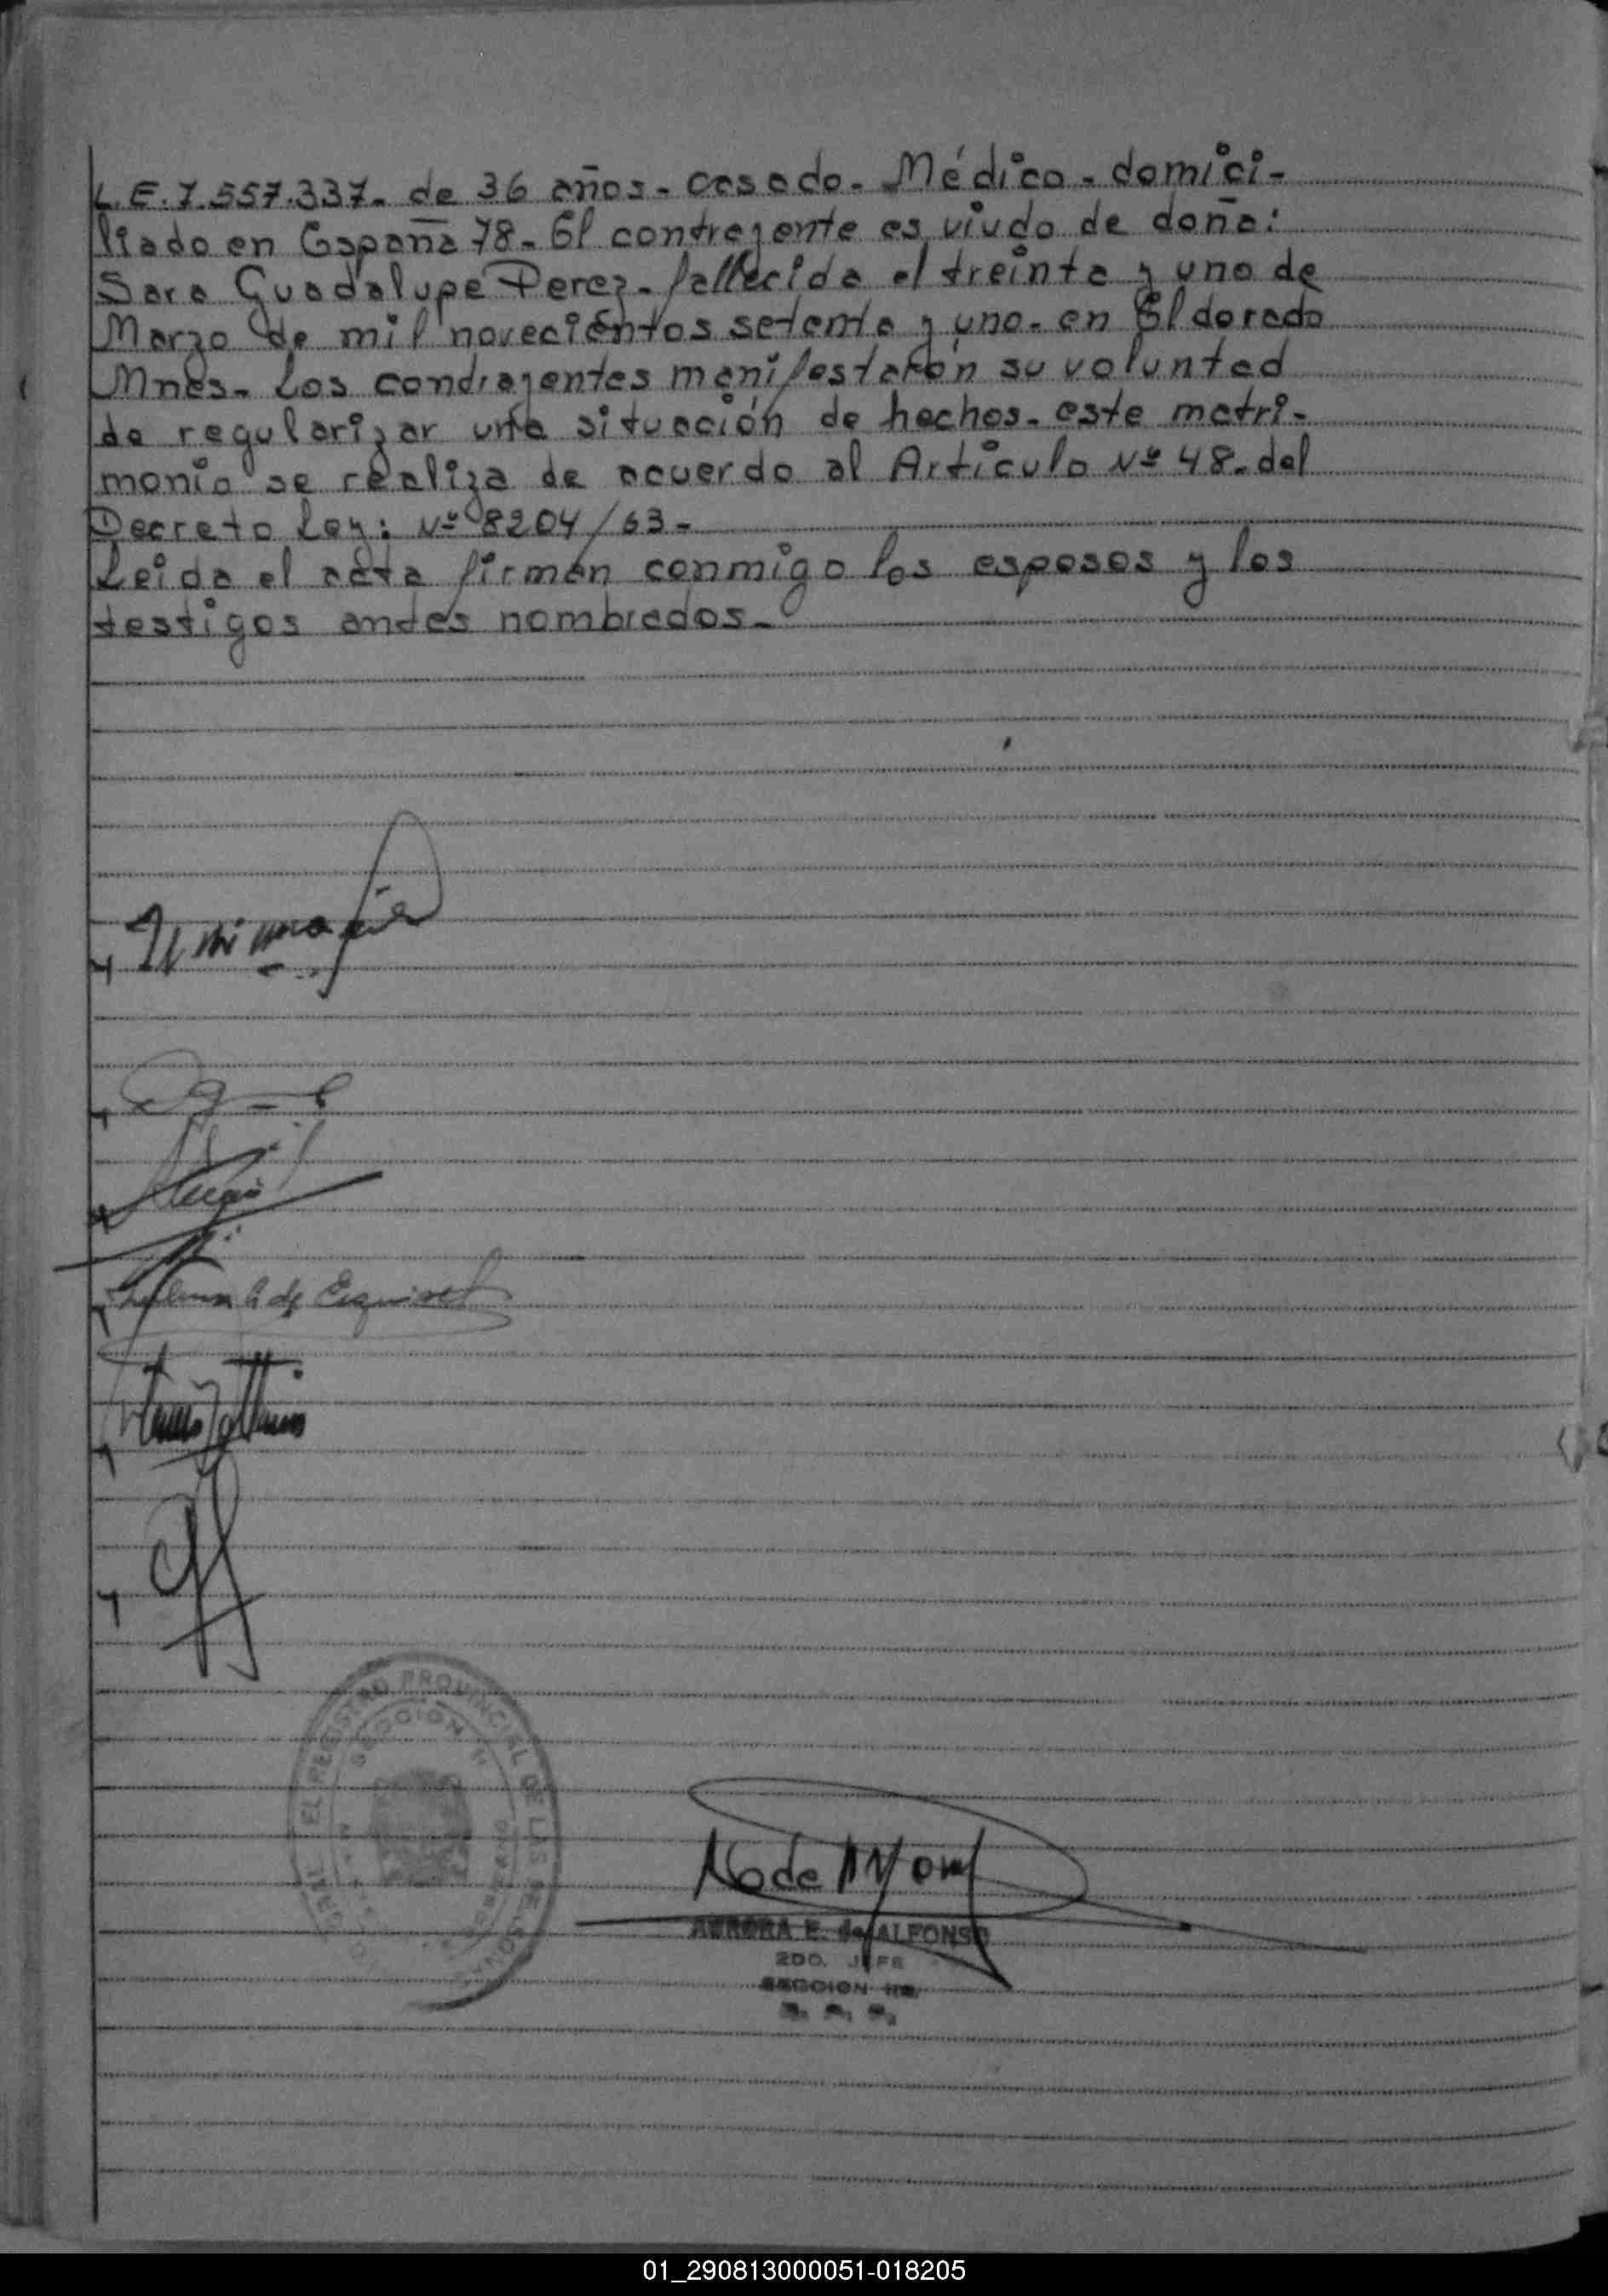 L.E.7.557.337. de 36 años. casado. Médico. domici-
liado en España 78. El contrayente es viudo de doña:
Sara Guadalupe Perez. fallecida el treinta y uno de
Marzo de mil novecientos setenta y uno. en Eldorado
Mnes. Los contrayentes manifestarón su voluntad
de regularizar una situación de hechos. este matri-
monio se realiza de acuerdo al Articulo Nº 48. del
Decreto Ley: Nº 8204/63-
Leida el acta firman conmigo los esposos y los
testigos antes nombrados.
de Esquivel
EL REGISTRO PROVINCIAL DE LAS PERSONAS
SECCION
AURORA E. de ALFONSO
2DO. JEFE
SECCION
01_290813000051-018205